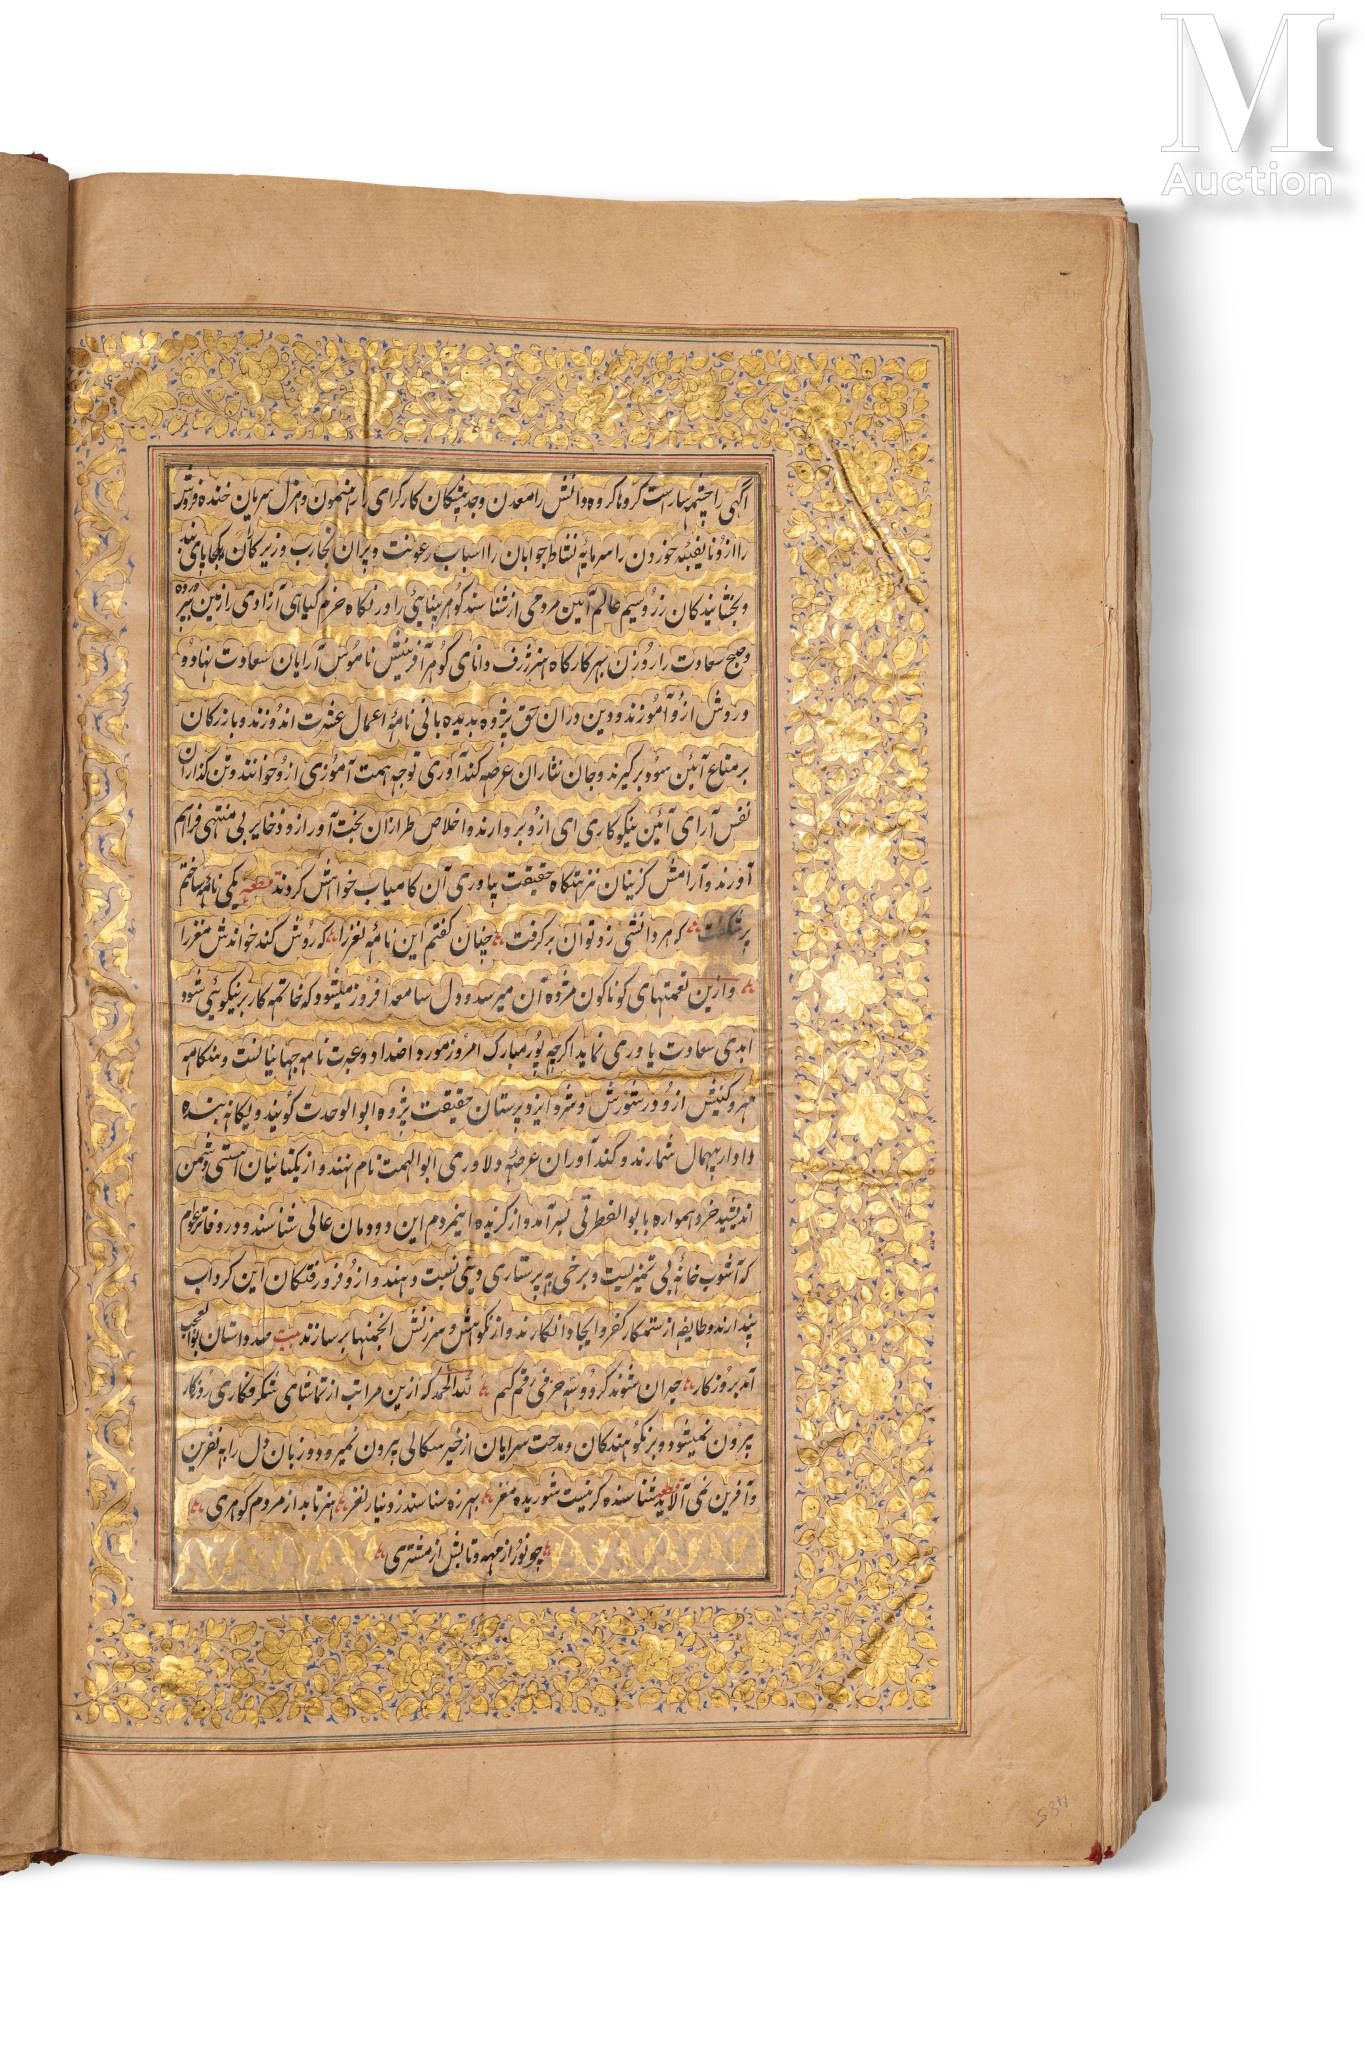 M
Auction
آگهی را چشمه سارست گروها گروه دانش را معدن و جد پیشگان کارگرای را رهنمون و هزل سرمایان خنده فروش
را ازو
خوردن را سرمایه نشاط جوانان را اسباب رعونت و پیران تجارب
و بخشایندگان زر و سیم عالم آئین مردمی ازو شناسند گوهر بینایی را
و صبح سعادت را روزن بهر کارگاه هنر ژرف دانای گوهر آفرینش ناموس آرایان سعادت نهاد
و روش ازو آموزند و دین دران حق پژوه بدیده بانی نامهٔ اعمال عشرت اندوزند و بازرگان
بر متاع آئین سود برگیرند و جان نثاران عرصه کندآوری توجه همت آموزی ازو خوانند و تن گذاران
نفس آرای آئین نیکوکاری ای ازو بردارند و اخلاص طرازان بخت آور ازو ذخایر بی منتهی فراهم
آورند و آرامش گزینان نزهتگاه حقیقت بیاوری آن کامیاب خواهش گردند قطعه یکی نامه ساختم
پر شگفت که هر دانشی زو توان برگرفت چنان گفتم این نامهٔ نغز را که روشن کند خواندنش مغز را
و ازین نعمتهای گوناگون مژده آن میرسد و دل سامعه افروز میشود که خاتمه کار بر نیکوئی شود
ابدی سعادت یاوری نماید اگرچه پور مبارک امروز مورد اضداد و عبرت نامه جهانیانست و هنگامه
مهر و کنیش ازو در شورش و شر و ایزد پرستان حقیقت پژوه ابوالوحدت گویند و یگانه بنده
دادار بیهمال شمارند و کندآوران عرصهٔ دلاوری ابوالهمت نام نهند و از یکتائیان هستی دشمن
اندیشند خرد همواره با بوالفطرتی بسرآمد و از گزیده اینمردم این دودمان عالی شناسند و در دفاتر عوام
که آشوب خانهٔ بی تمیزیست و برخی به پرستاری دنیی نسبت دهند و ازو فرو رفتگان این گرداب
پندارند و طایفه از ستمکار کفر و الحاد انگارند و از نکوهش و سرزنش انجمنها برسازند بیت صد داستان بوالعجب
آمد بروزگار حیران شوند گر دو سه حرفی رقم کنم لله الحمد که ازین مراتب از تماشای شگرفکاری روزگار
بیرون نمیشود و بر نکوهندگان و مدحت سرایان از خیر سگالی بیرون نمیرود و زبان دل را به نفرین
و آفرین نمی آلاید قطعه شناسنده گر نیست شوریده مغز بهرزه سناسند ز و نبار نغز هنر تابد از مردم گوهری
چو نور از مه و تابش از مشتری
485